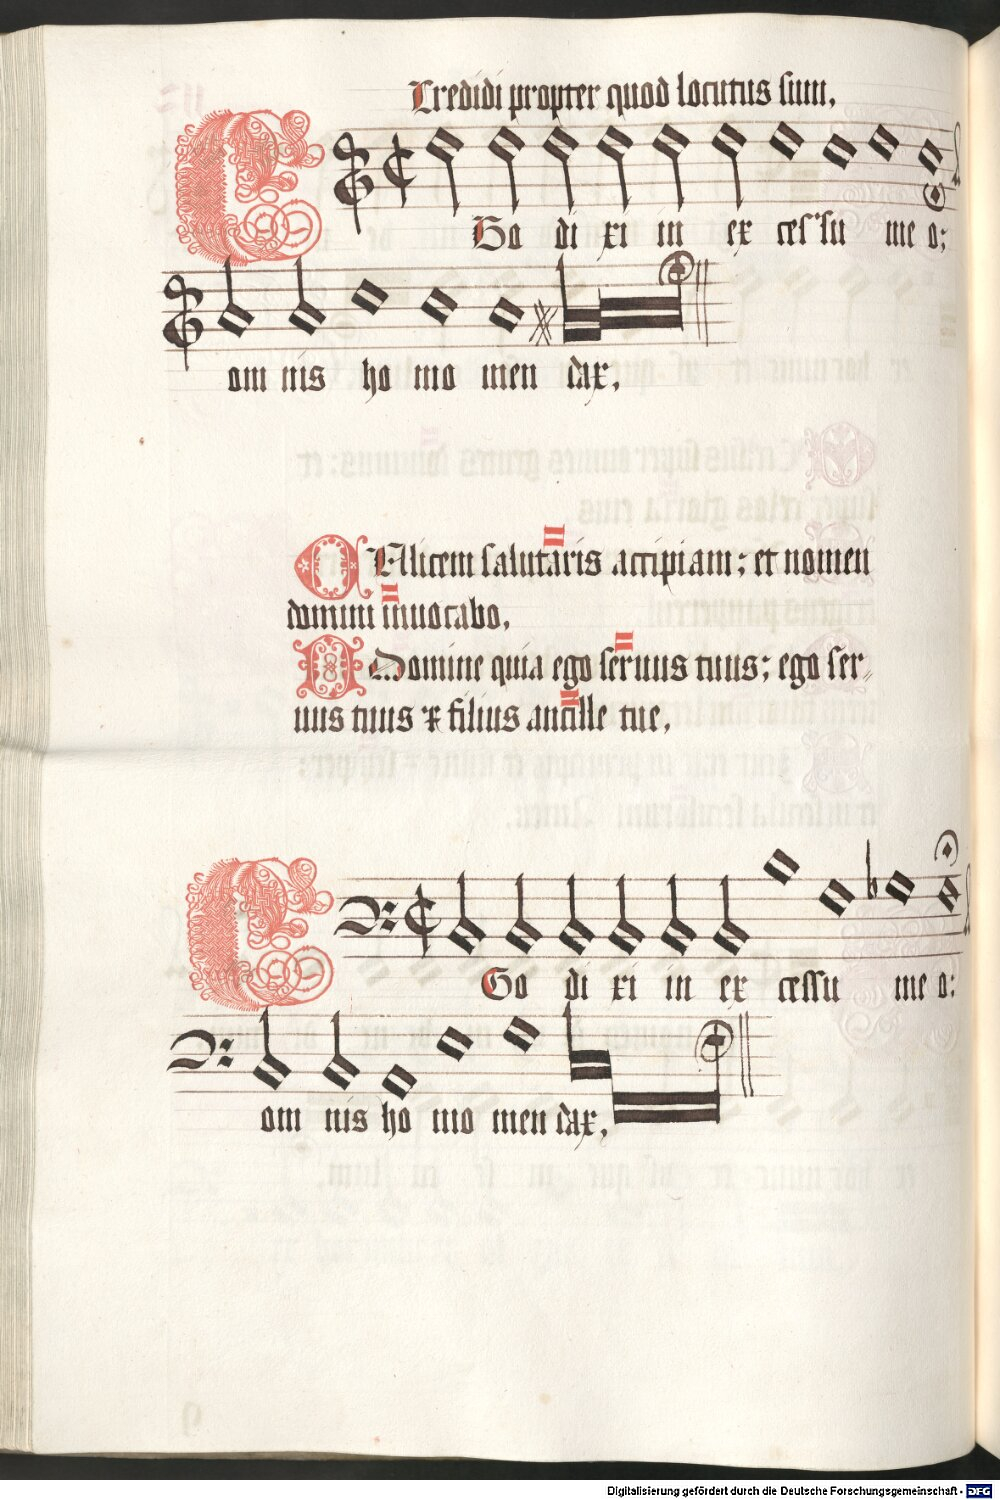 Credidi propter quod locutus sum,
EGo di xi in ex ces su me o;
om nis ho mo men dax,
CAlicem salutaris accipiam; et nomen
domini inuocabo,
O Domine quia ego seruus tuus; ego ser„
uus tuus & filius ancille tue,
EGo di xi in ex cessu me o:
om nis ho mo men dax,
Digitalisierung gefördert durch die Deutsche Forschungsgemeinschaft - DFG